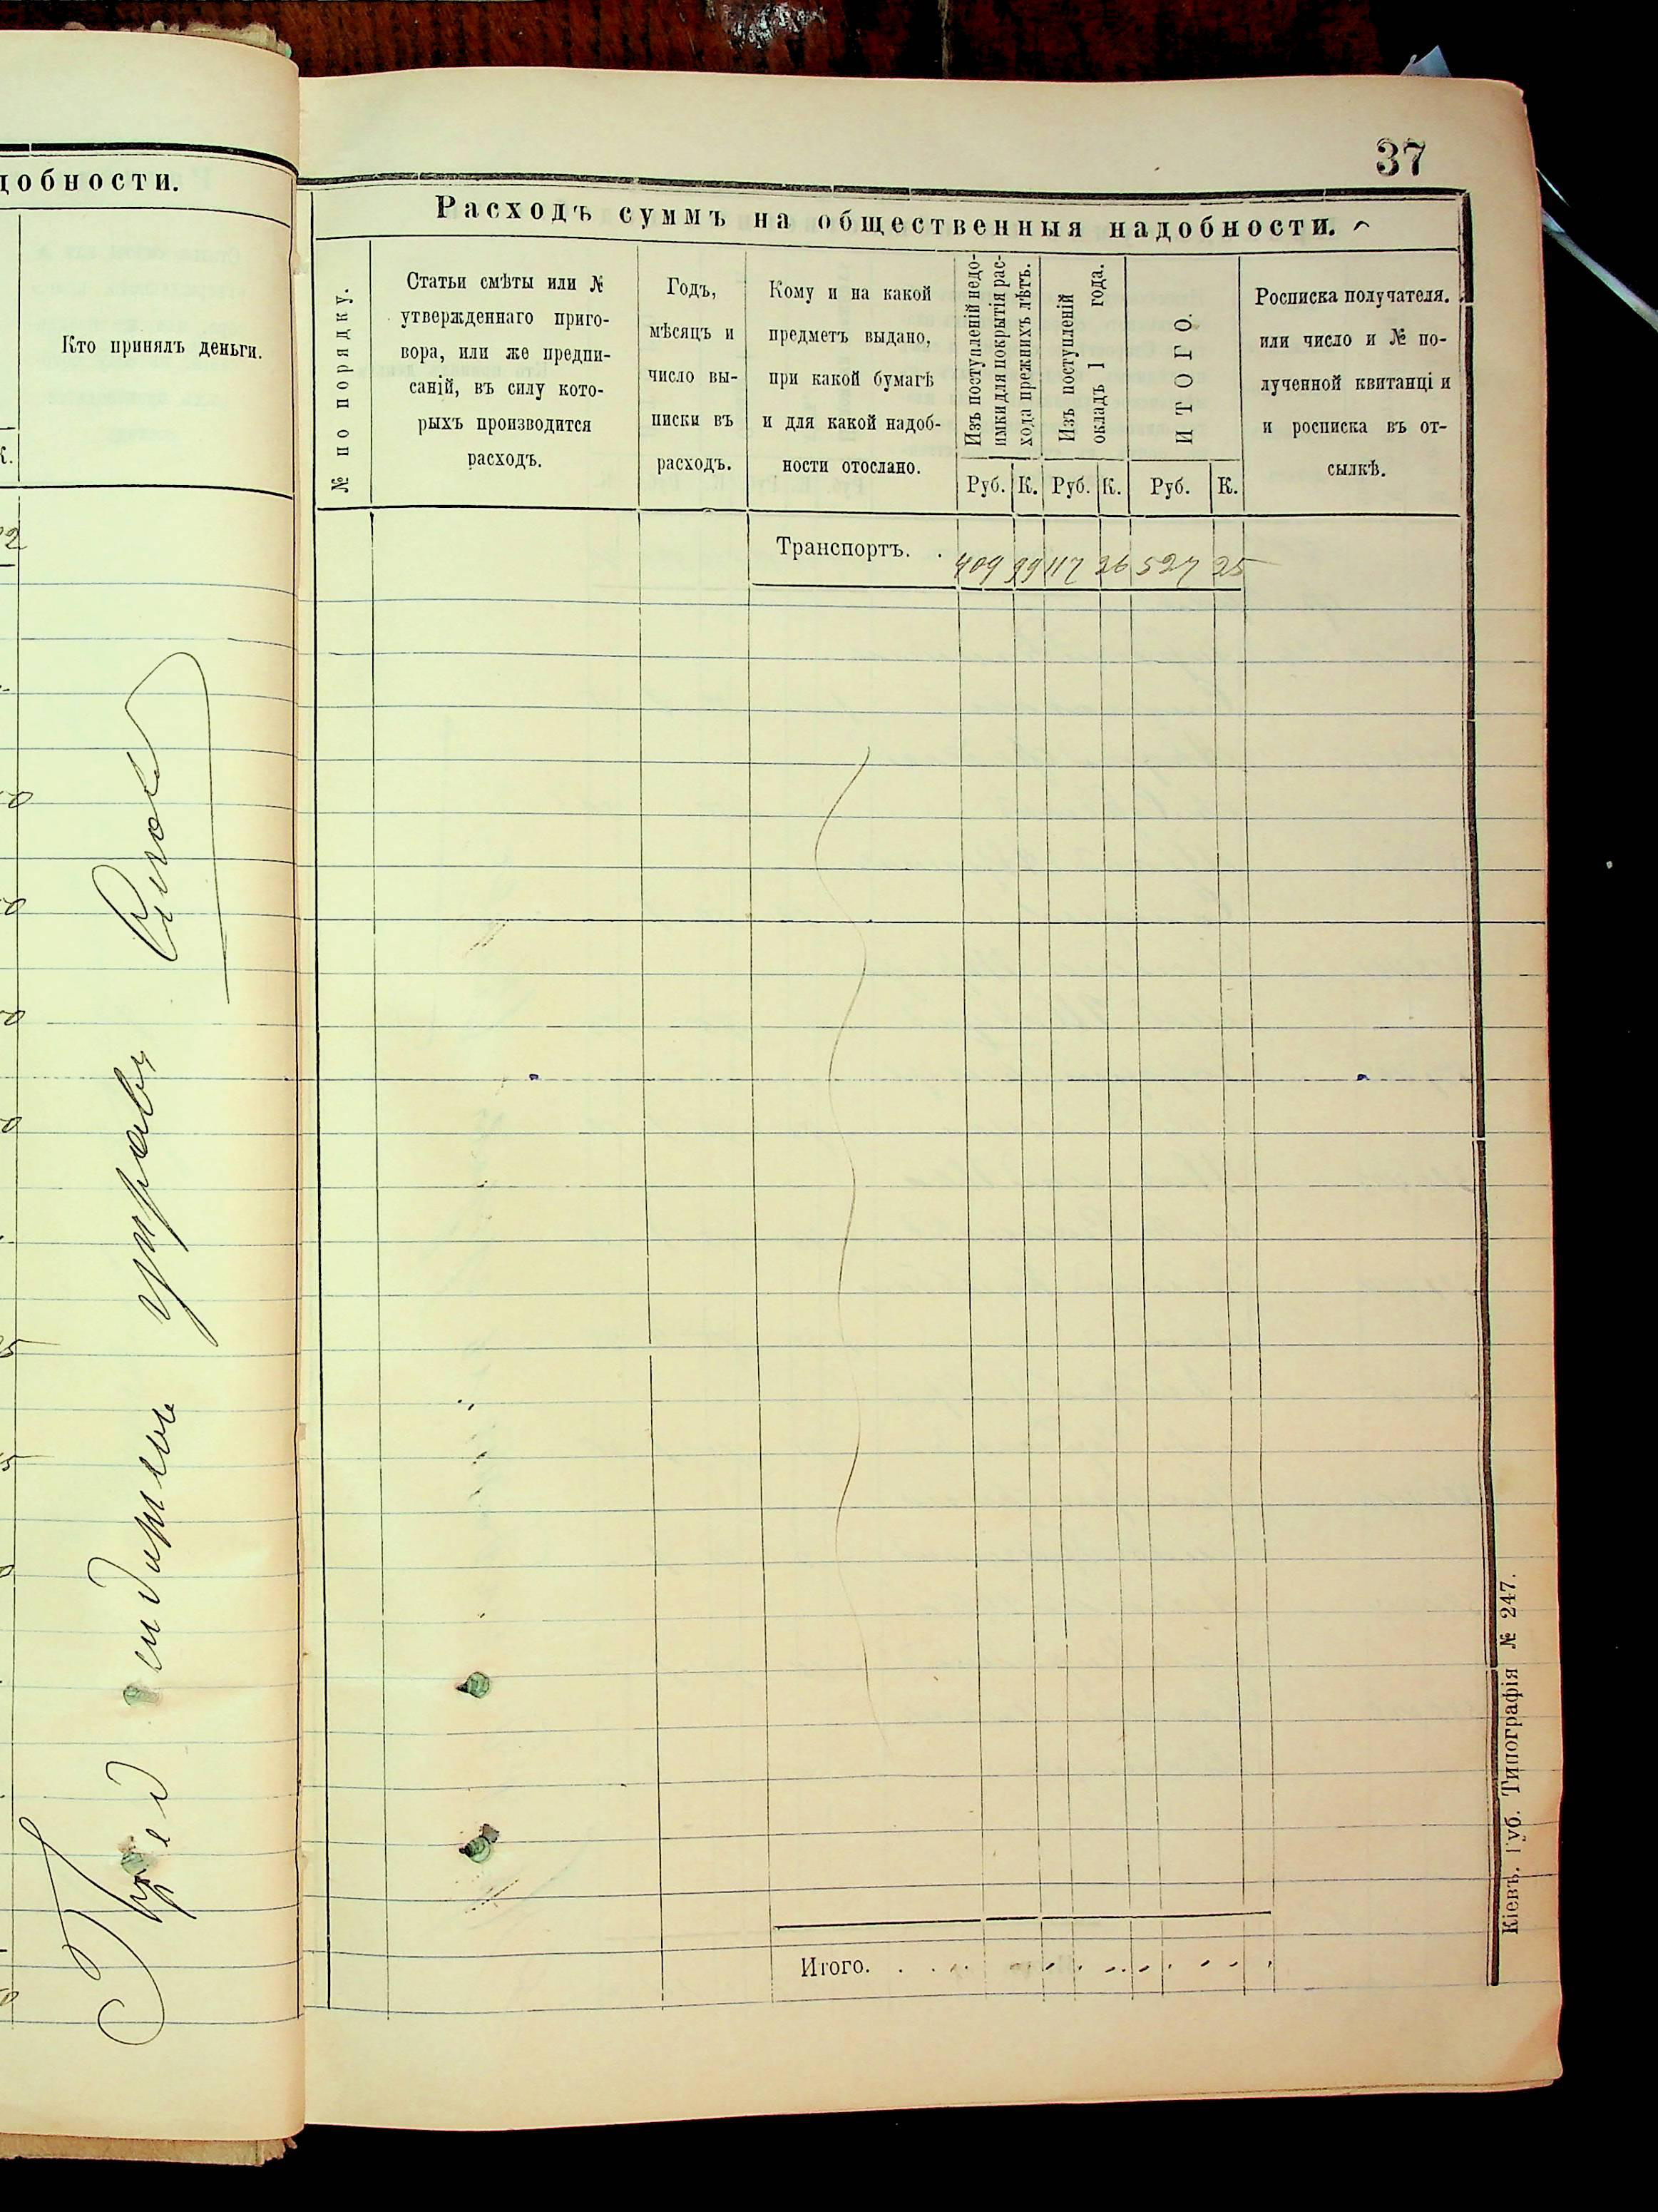 добности.
Кто принялъ деньги.
К.
37
Расходъ суммъ на общественныя надобности.
№ по порядку.
Статьи смѣты или №
утвержденнаго приго-
вора, или же предпи-
саній, въ силу кото-
рыхъ производится
расходъ.
Годъ,
мѣсяцъ и
число вы-
писки въ
расходъ.
Кому и на какой
предметъ выдано,
при какой бумагѣ
и для какой надоб-
ности отослано.
Изъ поступленій недо-
имки для покрытія рас-
хода прежнихъ лѣтъ.
Изъ поступленій
окладъ 1 года.
ИТОГО.
Росписка получателя.
или число и № по-
лученной квитанці и
и росписка въ от-
сылкѣ.
Руб. К. Руб. К. Руб. К.
Транспортъ. . 409 99 117 26 527 25
Итого.
Кіевъ. Губ. Типографія № 247.